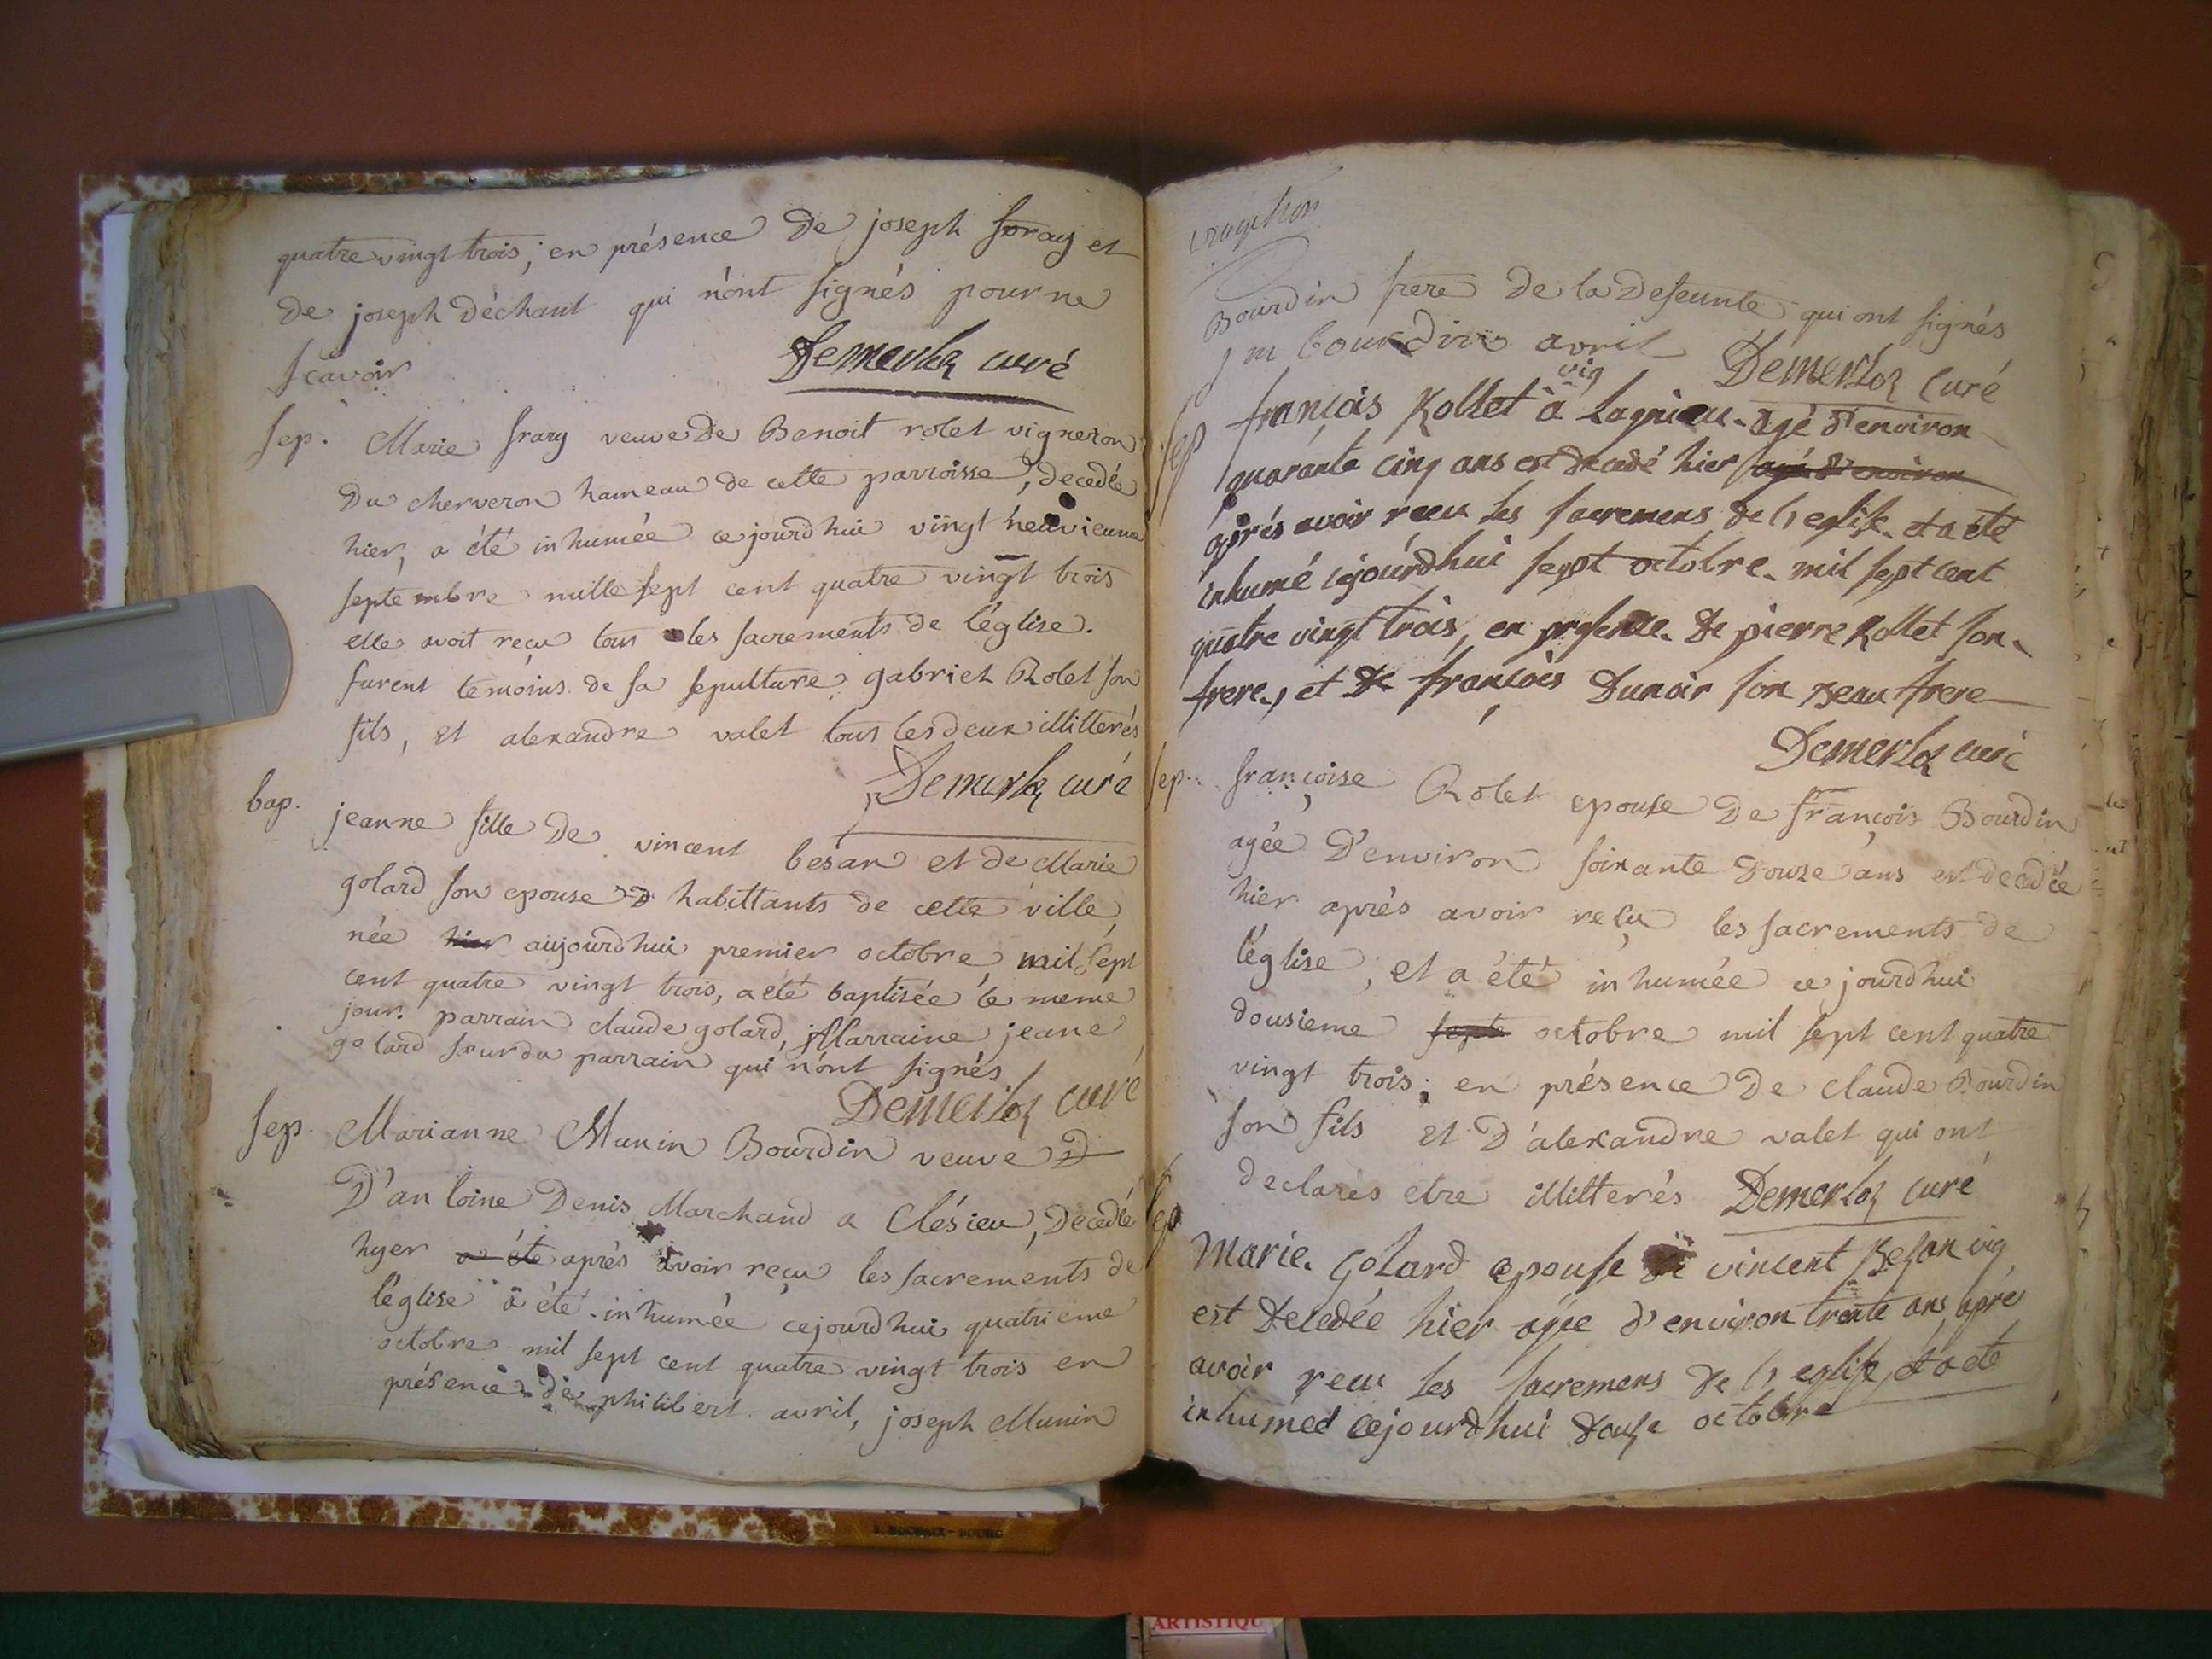 quatre vingt trois; en présence de joseph fray et
de joseph Déchant qui n'ont signés pour ne
scavoir
Demerloz curé
sep. Marie frary veuve de Benoit rolet vigneron
du cherveron hameau de cette parroisse, decedée
hier, a été inhumée cejourdhui vingt neuvieme
septembre mille sept cent quatre vingt trois
elle avoit reçu tous les sacrements de l'église.
furent temoins de sa sepulture gabriel Rolet son
fils, et alexandre valet tous les deux illitterés
Demerloz curé
bap. jeanne fille de vincent besan et de Marie
golard son epouse habittants de cette ville
née hier aujourdhui premier octobre mil sept
cent quatre vingt trois, a été baptisée le meme
jour. parrain claude golard, Marraine jeane
golard sœur du parrain qui n'ont signés
Demerloz curé
sep. Marianne Munin Bourdin veuve D
D'antoine Denis Marchand a Clésieu, Decedée
hyer a été après avoir reçu les sacrements de
l'église a été inhumée cejourdhui quatrieme
octobre mil sept cent quatre vingt trois en
présence de philibert avril, joseph Munin
Bourdin frere de la defeunte qui ont signés
j m bourdin avril
Demerloz curé
vig
sep françois Rollet à Lagnieu agé d'environ
quarante cinq ans est decedé hier agé d'environ
après avoir receu les sacremens de l'eglise et a été
inhumé cejourdhui sept octobre mil sept cent
quatre vingt trois, en presence de pierre Rollet son
frere, et de françois Dunoir son beau frere
Demerloz curé
sep. françoise Rolet epouse de françois Bourdin
agée D'environ soixante douze ans est decedée
hier après avoir reçu les sacrements de
l'église, et a été inhumée cejourdhui
dousieme septe octobre mil sept cent quatre
vingt trois; en présence de claude Bourdin
son fils et D'alexandre valet qui ont
declarés etre illitterés Demerloz curé
sep Marie Golard epouse de vincent Besan vig
est decedée hier agée d'environ trente ans apré
avoir receu les sacremens de l'eglise, et a ete
inhumed cejourdhui douse octobre
ARTISTIQU